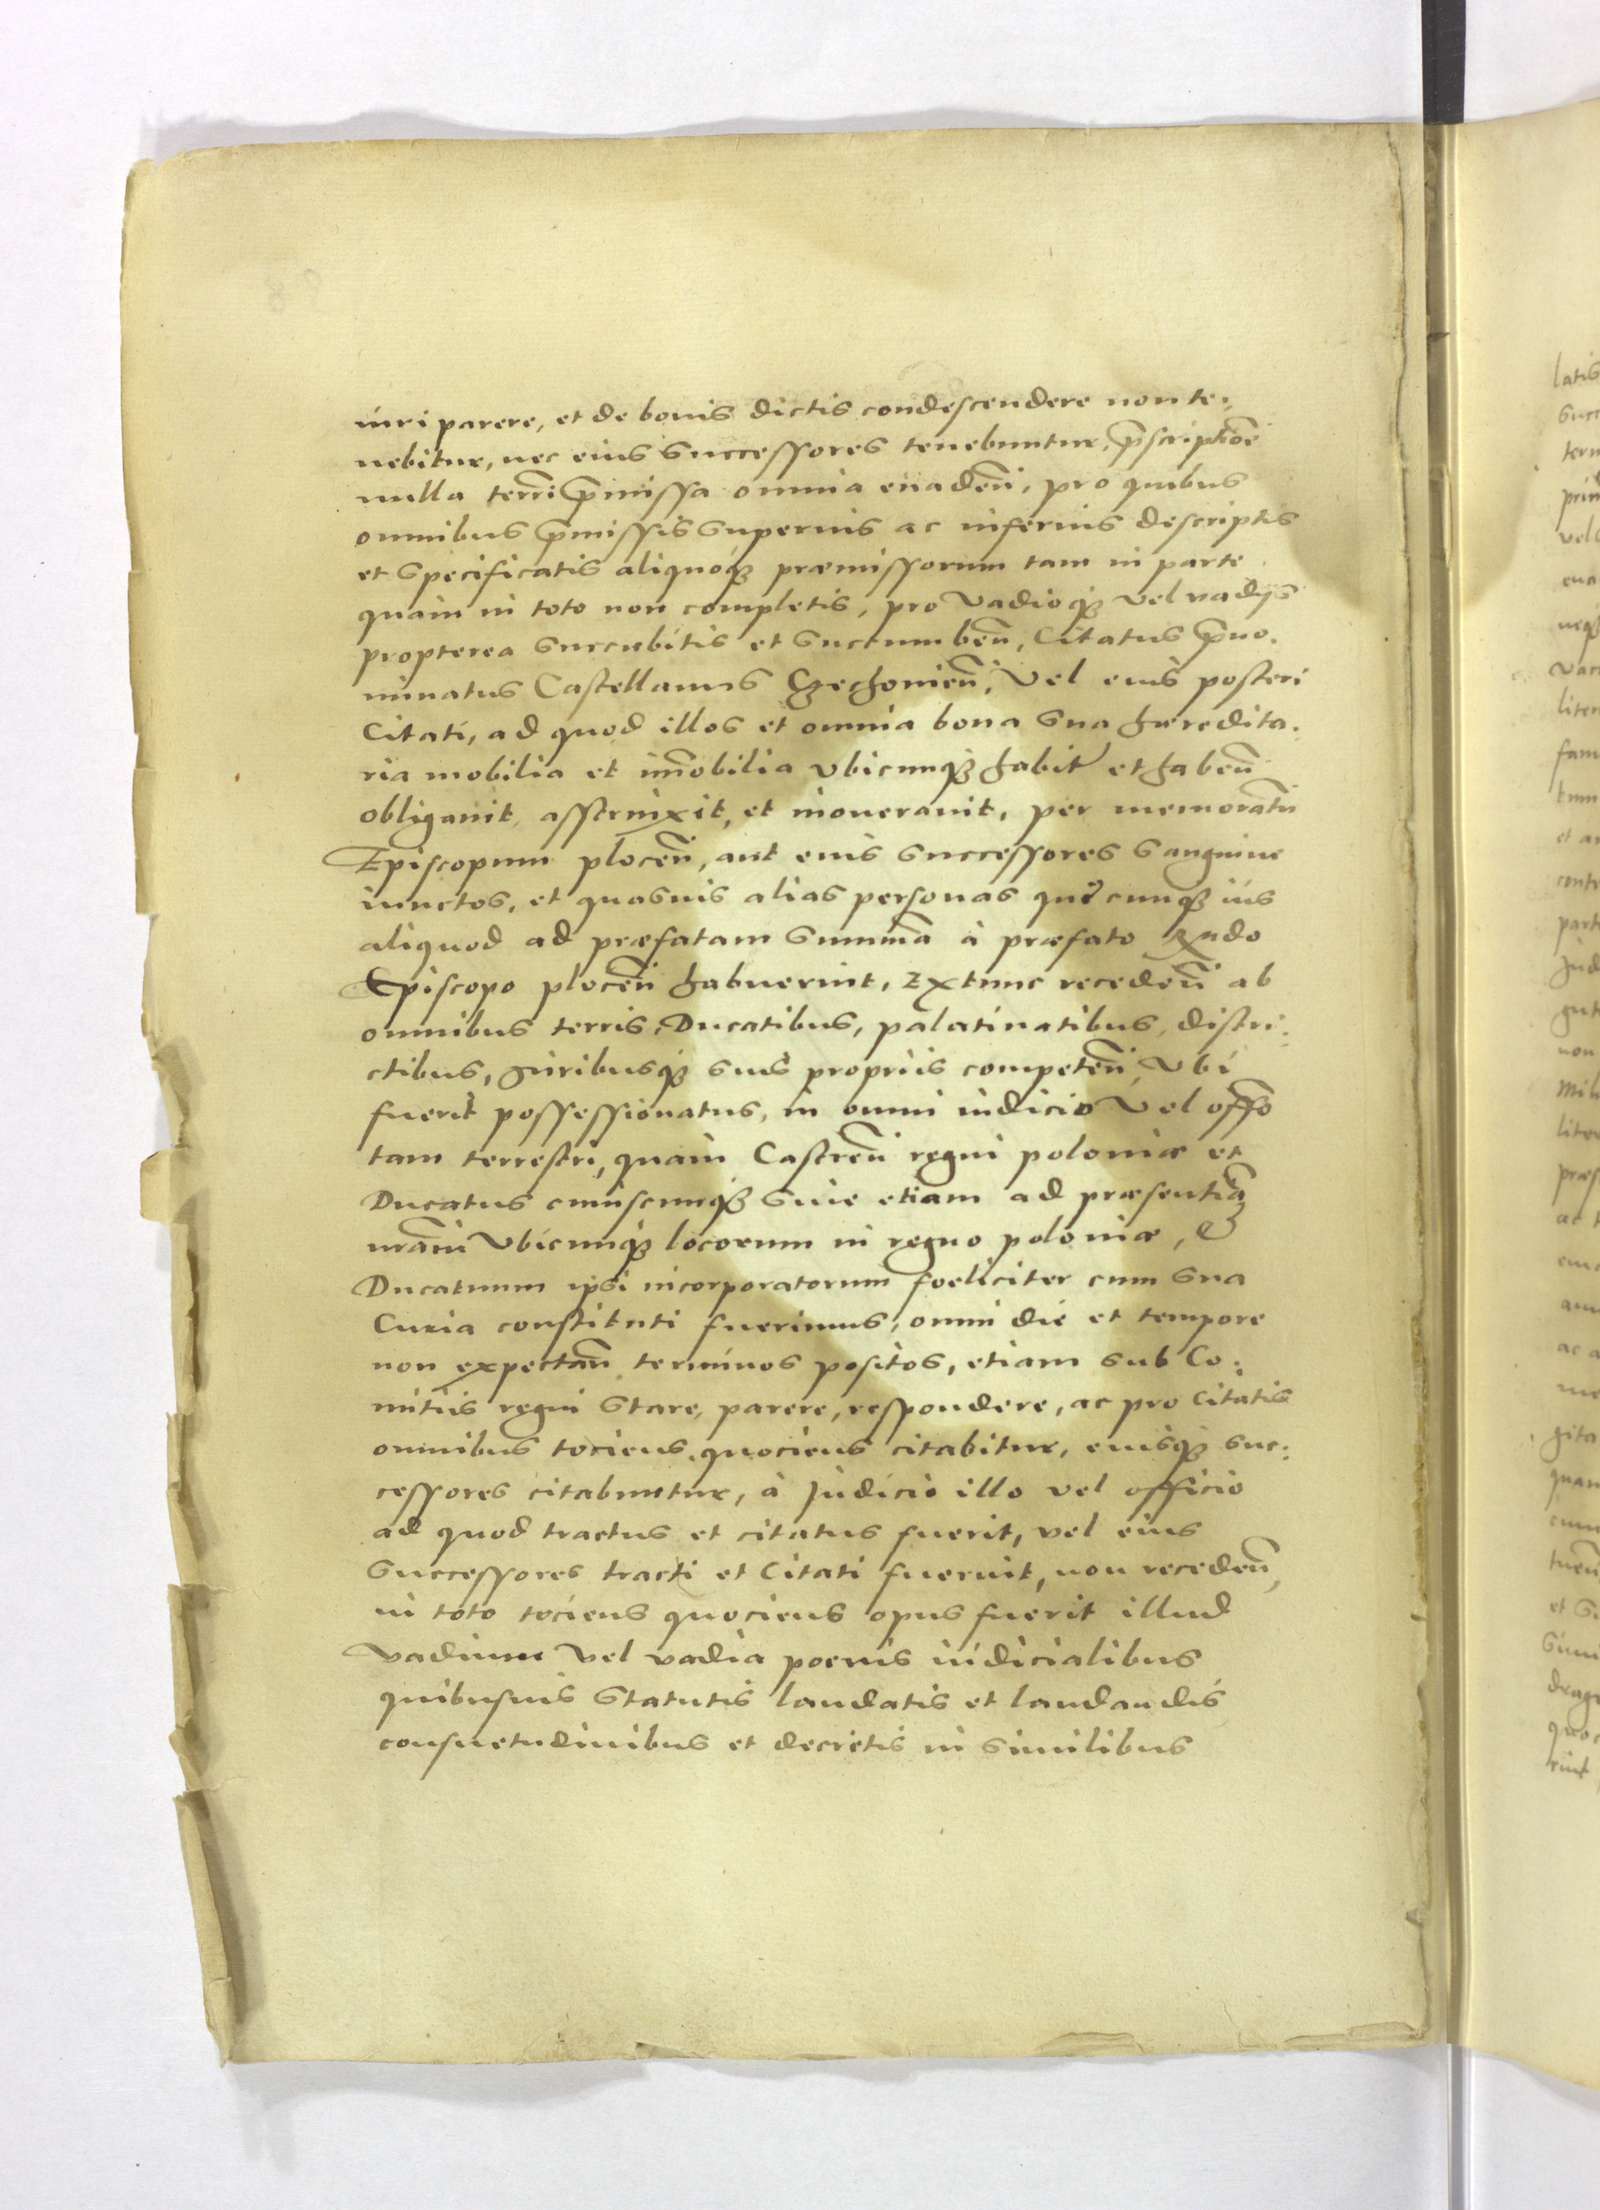 iuri parere, et de bonis dictis condescendere non te:
nebitur, nec eius successores tenebuntur, p̄scriptiōe
nulla terrī p̄missa omnia euadeñ, pro quibus
omnibus p̄missis superius ac inferius descriptis
et specificatis aliquóq₃ præmissorum tam in parte
quàm in toto non completis, pro vadioq₃ vel vadijs
propterea succubitis et succumbeñ, Citatus p̄no.
minatus Castellanus Czechonieñ, vel eius posteri
Citati, ad quod illos et omnia bona sua hæredita.
ria mobilia et im̄obilia vbicunq₃ habit et habeñ
obligauit, asstrinxit, et inonerauit, per memoratū
Episcopum ploceñ, aut eius successores sanguine
iunctos, et quasuis alias personas quæcunq₃ ius
aliquod ad præfatam summā à præfato Rndo
Episcopo ploceñ habuerint, Extunc recedeñ ab
omnibus terris, Ducatibus, palatinatibus, distri:
ctibus, iuribusq₃ suis proprijs competeñ, vbi
fuerit possessionatus, in omni iudicio vel offo
tam terrestri, quàm Castreñ regni poloniæ et
Ducatus cuiuscunq₃ siue etiam ad præsentiā
nram̄ vbicunq₃ locorum in regno poloniæ, &
Ducatuum ipsi incorporatorum foeliciter cum sua
Curia constituti fuerimus, omni die et tempore
non expectañ terminos positos, etiam sub Co:
mitijs regni stare, parere, respondere, ac pro citatis
omnibus tociens quociens citabitur, eiusq₃ suc:
cessores citabuntur, à Judicio illo vel officio
ad quod tractus et citatus fuerit, vel eius
successores tracti et citati fuerint, non recedeñ,
in toto tociens quociens opus fuerit illud
vadium vel vadia poenis iudicialibus
quibusuis statutis laudatis et laudandis
consuetudinibus et decretis in similibus